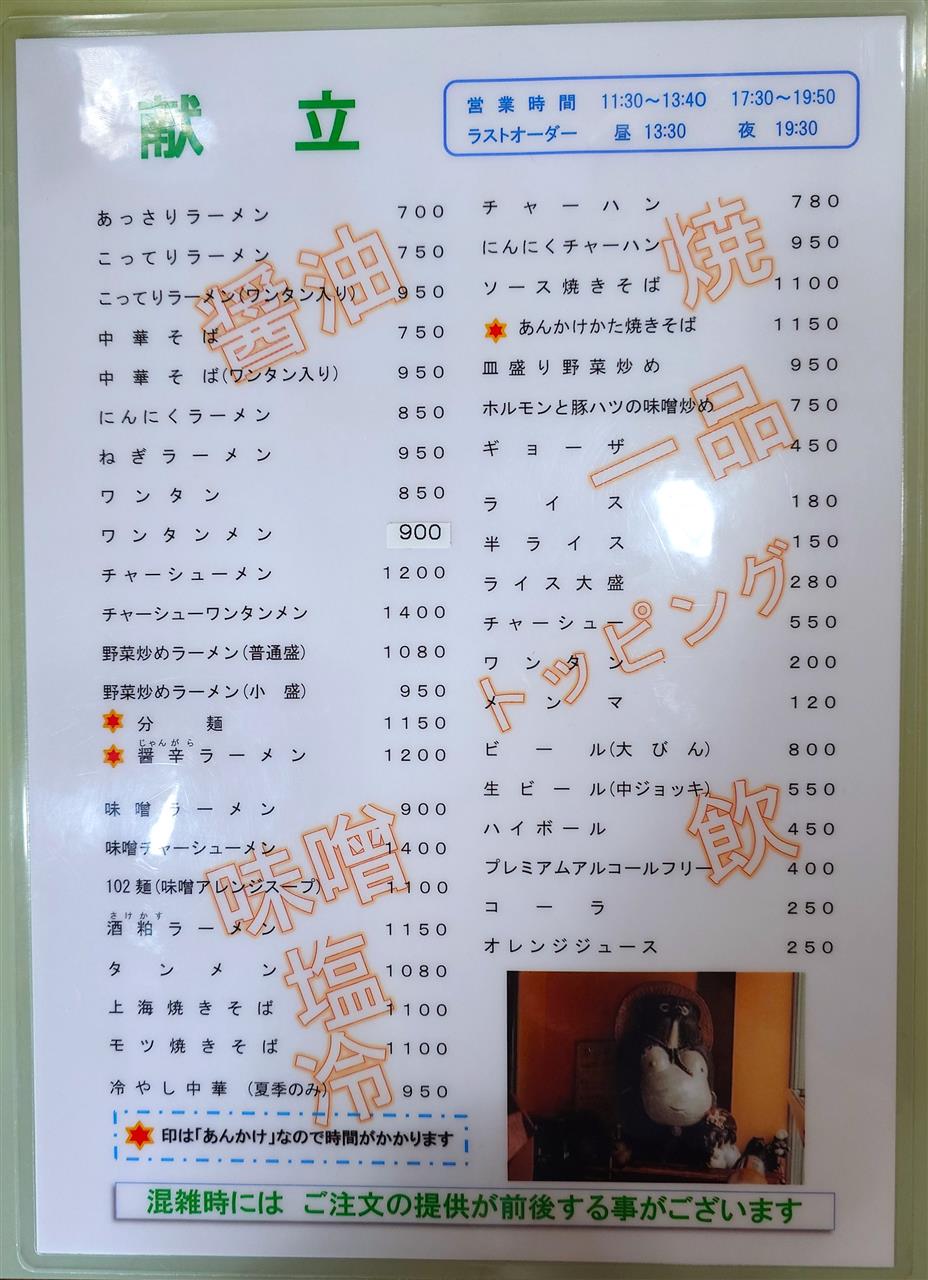 献立
営業時間 11:30～13:40 17:30～19:50
ラストオーダー 昼 13:30 夜 19:30
醤油
あっさりラーメン 700
こってりラーメン 750
こってりラーメン(ワンタン入り) 950
中華そば 750
中華そば(ワンタン入り) 950
にんにくラーメン 850
ねぎラーメン 950
ワンタン 850
ワンタンメン 900
チャーシューメン 1200
チャーシューワンタンメン 1400
野菜炒めラーメン(普通盛) 1080
野菜炒めラーメン(小 盛) 950
分麺 1150
じゃんがら
醤辛ラーメン 1200
味噌
味噌ラーメン 900
味噌チャーシューメン 1400
102麺(味噌アレンジスープ) 1100
さけかす
酒粕ラーメン 1150
塩
タンメン 1080
上海焼きそば 1100
モツ焼きそば 1100
冷
冷やし中華 (夏季のみ) 950
印は「あんかけ」なので時間がかかります
焼
チャーハン 780
にんにくチャーハン 950
ソース焼きそば 1100
あんかけかた焼きそば 1150
一品
皿盛り野菜炒め 950
ホルモンと豚ハツの味噌炒め 750
ギョーザ 450
ライス 180
半ライス 150
ライス大盛 280
トッピング
チャーシュー 550
ワンタン 200
メンマ 120
飲
ビール(大びん) 800
生ビール(中ジョッキ) 550
ハイボール 450
プレミアムアルコールフリー 400
コーラ 250
オレンジジュース 250
混雑時には ご注文の提供が前後する事がございます